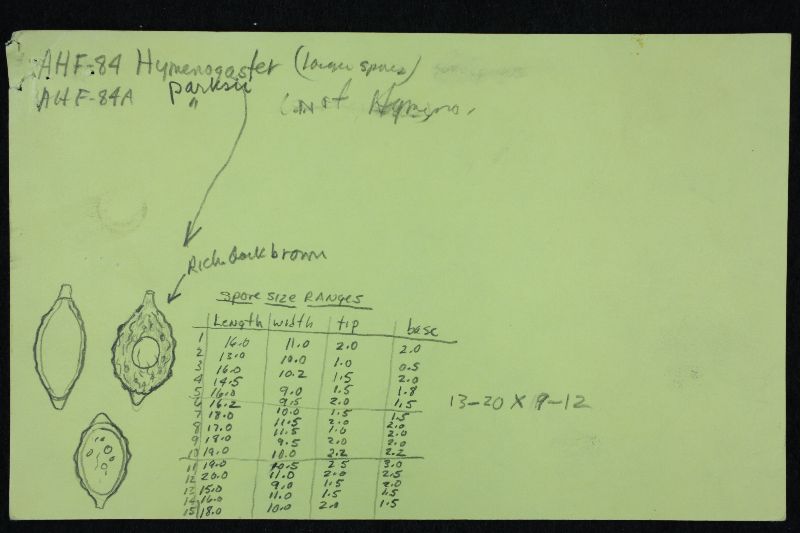 AHF-84 Hymenogaster (larger spores)
AHF-84A parksii
" (not Hymeno.
Rich dark brown
Spore size RANGES
Length width tip base
1 16.0 11.0 2.0 2.0
2 13.0 10.0 1.0 0.5
3 16.0 10.2 1.5 2.0
4 14.5 9.0 1.5 1.8
5 16.0 9.5 2.0 1.5
6 16.2 10.0 1.5 1.5
7 18.0 11.5 2.0 2.0
8 17.0 11.5 1.0 2.0
9 18.0 9.5 2.0 2.0
10 19.0 10.0 2.2 2.2
11 19.0 10.5 2.5 3.0
12 20.0 11.0 2.0 2.5
13 15.0 9.0 1.5 2.0
14 16.0 11.0 1.5 1.5
15 18.0 10.0 2.0 1.5
13-20 X 9-12